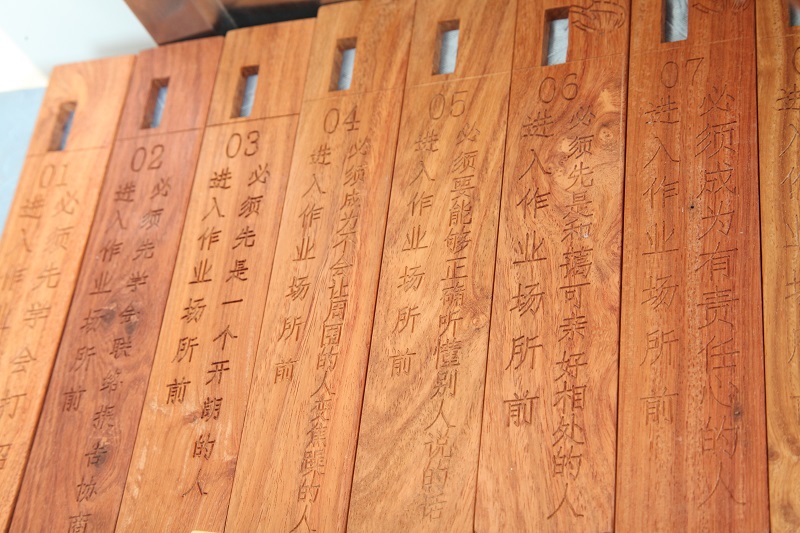 01
进入作业
必须先学会打招
02
进入作业场所前
必须先学会联络报告协商
03
进入作业场所前
必须先是一个开朗的人
04
进入作业场所前
必须成为不会让周围的人变焦躁的人
05
进入作业场所前
必须要能够正确听懂别人说的话
06
进入作业场所前
必须先是和蔼可亲好相处的人
07
进入作业场所前
必须成为有责任心的人